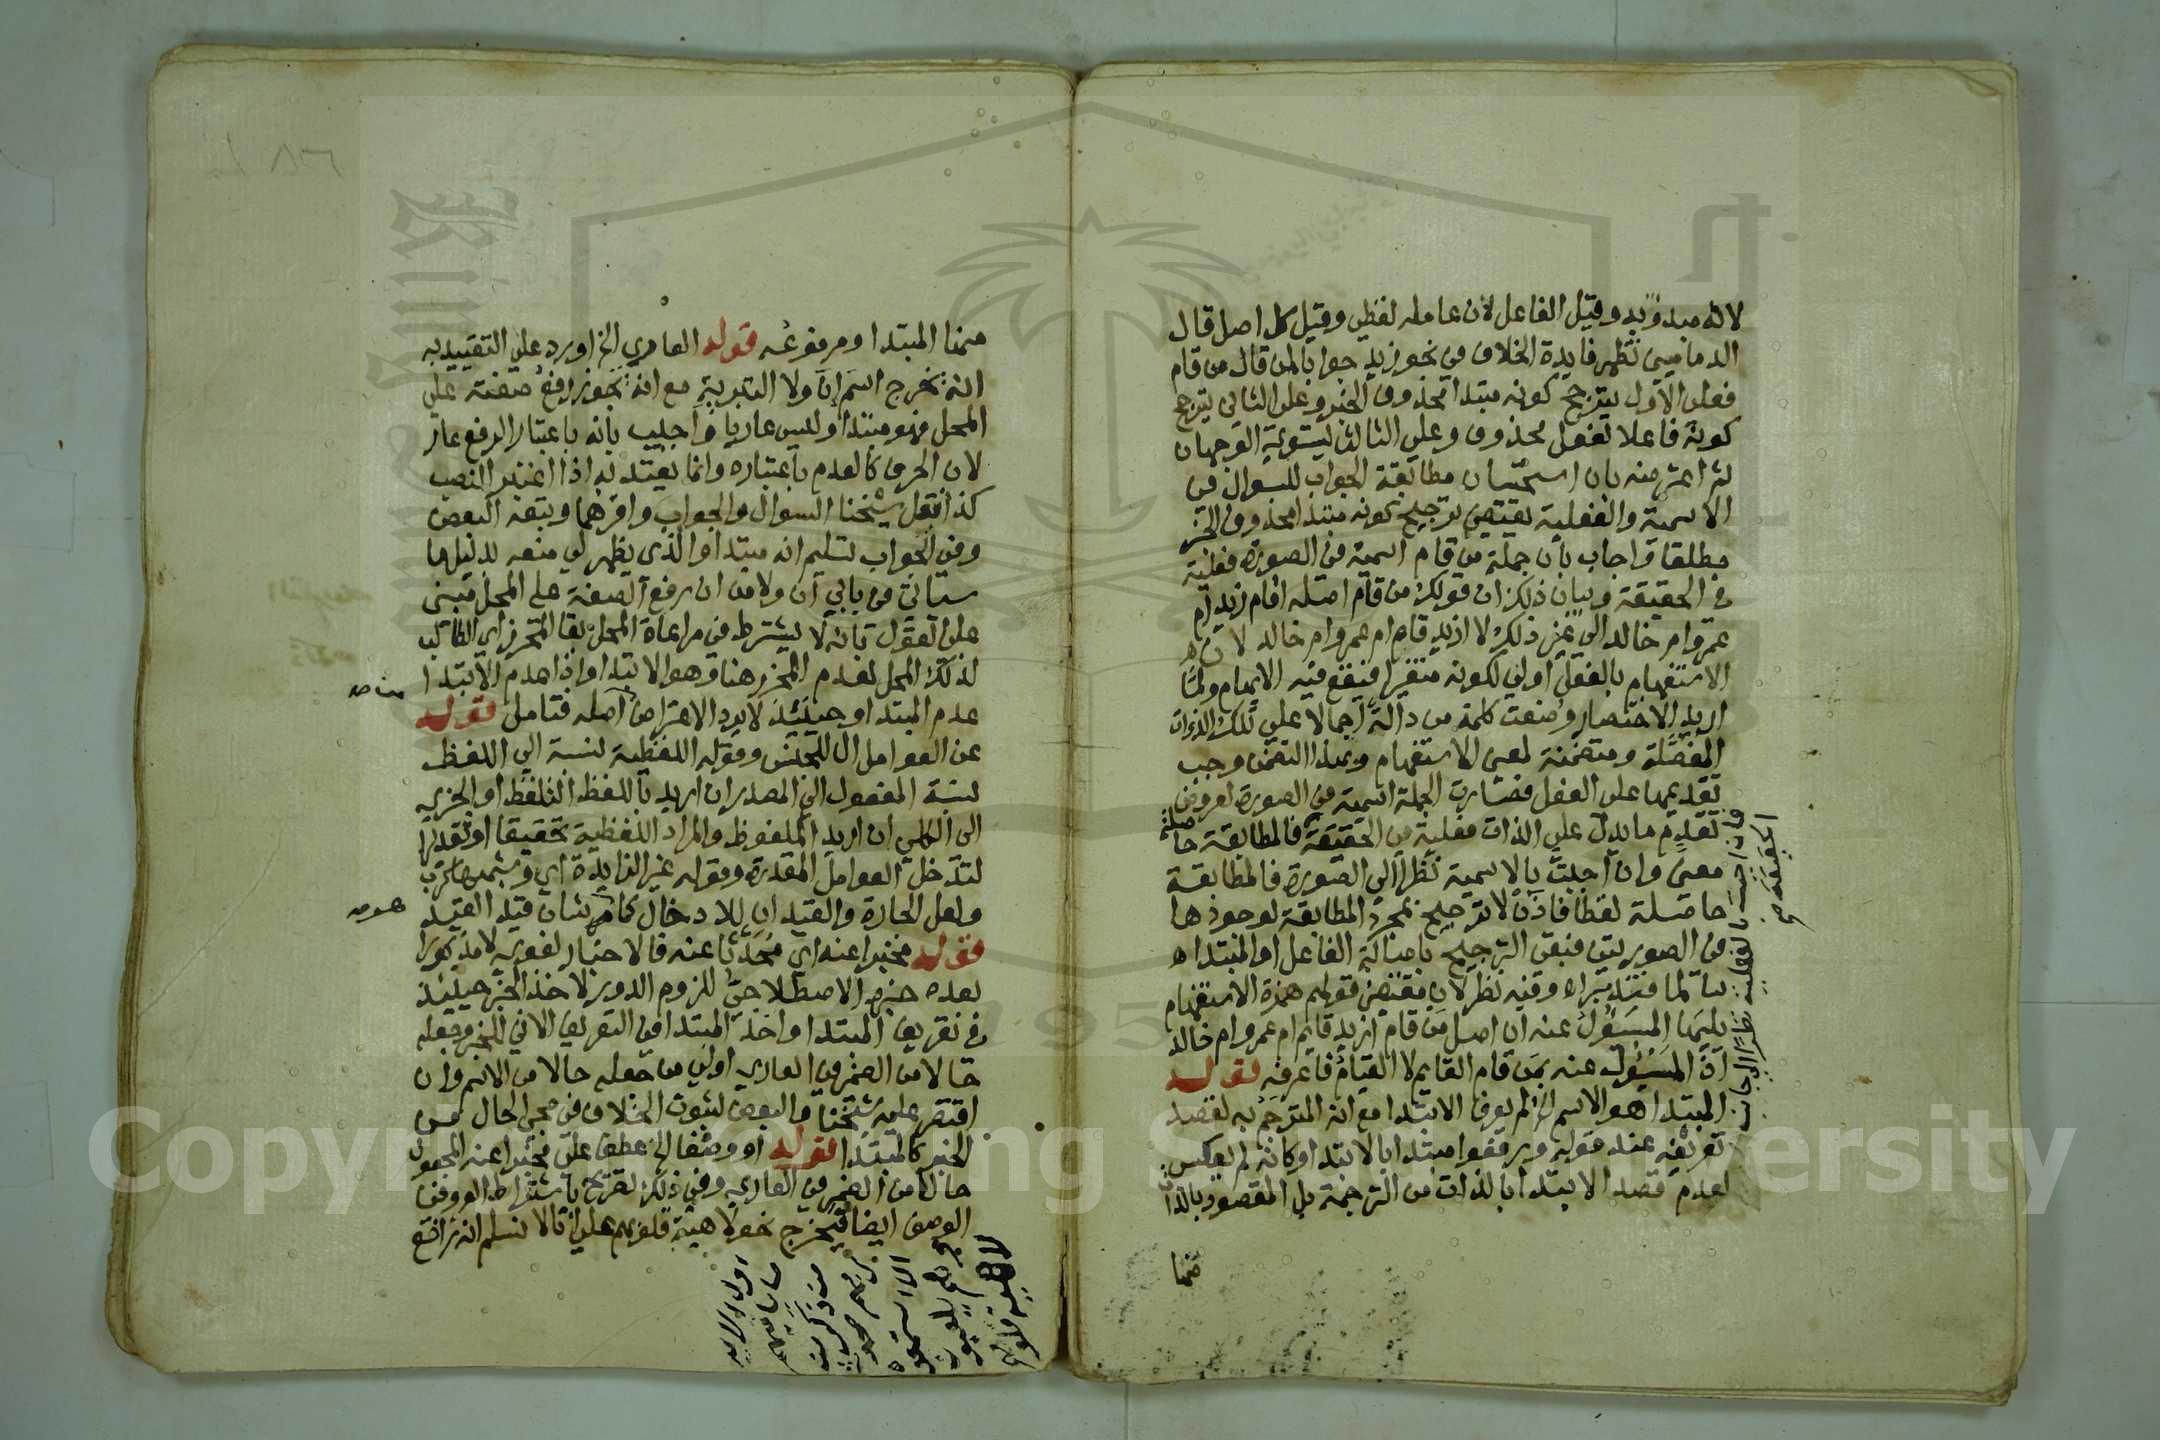 لانه مبدوٌ به وقيل الفاعل لأن عامله لفظي وقيل كل اصل قال
الدماميني تظهر فايدة الخلاف في نحو زيد جوابا لمن قال من قام
فعلى الاول يترجح كونه مبتدا محذوف الخبر وعلى الثاني يترجح
كونه فاعلا لفعل محذوف وعلى الثالث يستوي الوجهان
ثم اعترضه بان استحسان مطابقة الجواب للسوال في
الاسمية والفعلية يقتضي ترجيح كونه مبتدا محذوف الخبر
مطلقا واجاب بأن جملة من قام اسمية في الصورة فعلية
في الحقيقة وبيان ذلك ان قولك من قام اصله اقام زيد ام
عمرو ام خالد الى غير ذلك لا ازيد قام ام عمرو ام خالد لان
الاستفهام بالفعل اولى لكونه متغيرا فيقع فيه الابهام ولما
اريد الاختصار وضعت كلمة من دالة اجمالا على تلك الذوات
المفصلة ومتضمنة لمعنى الاستفهام وبهذا التضمن وجب
تقديمها على الفعل فصارت الجملة اسمية في الصورة لعروض
تقديم ما يدل على الذات فعلية في الحقيقة فالمطابقة حاصلة
معنى وان اجبت بالاسمية نظرا الى الصورة فالمطابقة
حاصلة لفظا فاذن لا ترجيح بمجرد المطابقة لوجودها
في الصورتين فبقى الترجيح باصالة الفاعل او المبتدا
سالما فتدبره وفيه نظر لان مقتضى قولهم همزة الاستفهام
يليها المسؤل عنه ان اصل من قام ازيد قام ام عمرو ام خالد
اذ المسؤل عنه بمن قام القايم لا القيام فاعرفه قوله
المبتدا هو الاسم الخ لم يعرف الابتدا مع انه المترجم به لقصد
تعريفه عند قوله ورفعوا مبتدا بالابتدا وكانه لم يعكس
لعدم قصد الابتدا بالذات من الترجمة بل المقصود بالذات
فان اجبت بالفعلية نظرا الى جانب
الحقيقة صح
منها
منها المبتدا ومرفوعه قوله العاري الخ اورد على التقييد به
انه يخرج اسم إن ولا التبرية مع انه يجوز رفع صفته على
المحل فهو مبتدا وليس عاريا واجيب بانه باعتبار الرفع عار
لان الحرف كالعدم باعتباره وانما يعتد به اذا اعتبر النصب
كذا نقل شيخنا السوال والجواب واقرهما وتبعه البعض
وفي الجواب تسليم انه مبتدا والذي يظهر لي منعه لدليلها
سياتي في بابي ان ولا من ان رفع الصفة على المحل مبني
على القول بانه لا يشترط في مراعاة المحل بقا المحرز اي الطالب
لذلك المحل لعدم المحرز هنا وهو الابتدا واذا هدم الابتدا
عدم المبتدا وحينئذ لا يرد الاعتراض من اصله فتامل قوله
عن العوامل ال للجنس وقوله اللفظية نسبة الى اللفظ
نسبة المفعول الى المصدر ان اريد باللفظ التلفظ او الجزي
الى الكلي ان اريد الملفوظ والمراد اللفظية تحقيقا او تقديرا
لتدخل العوامل المقدرة وقوله غير الزايدة اي وشبهها كرب
ولعل الجارة والقيد ان للادخال كما هو شان قيد القيد
قوله مخبرا عنه اي محدثا عنه فالاخبار لغوي لا مذكورا
بعده خبره الاصطلاحي للزوم الدور لاخذ الخبر حينئذ
في تعريف المبتدا واخذ المبتدا في التعريف الاتي للخبر وجعله
حالا من الضمير في العاري اولى من جعله حالا من الاسم وان
اقتصر عليه شيخنا والبعض لثبوت الخلاف في مجي الحال من
الخبر كالمبتدا قوله او وصفا الخ عطف على مخبرا عنه المجعول
حالا من الضمير في العاري وفي ذلك تصريح باشتراط العرو في
الوصف ايضا فيخرج نحو لاهية قلوبهم على انا لا نسلم انه رافع
لاهية قلوبهم